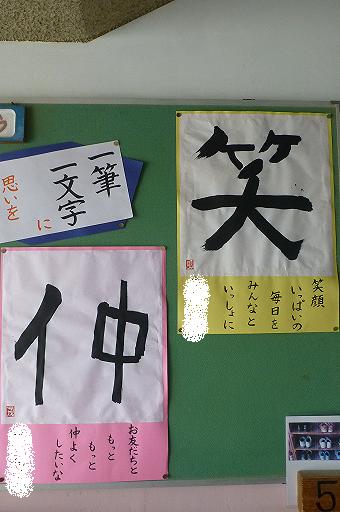 一筆
一文字
に
思いを
笑
笑顔
いっぱいの
毎日を
みんなと
いっしょに
仲
お友だちと
もっと
もっと
仲よく
したいな
5